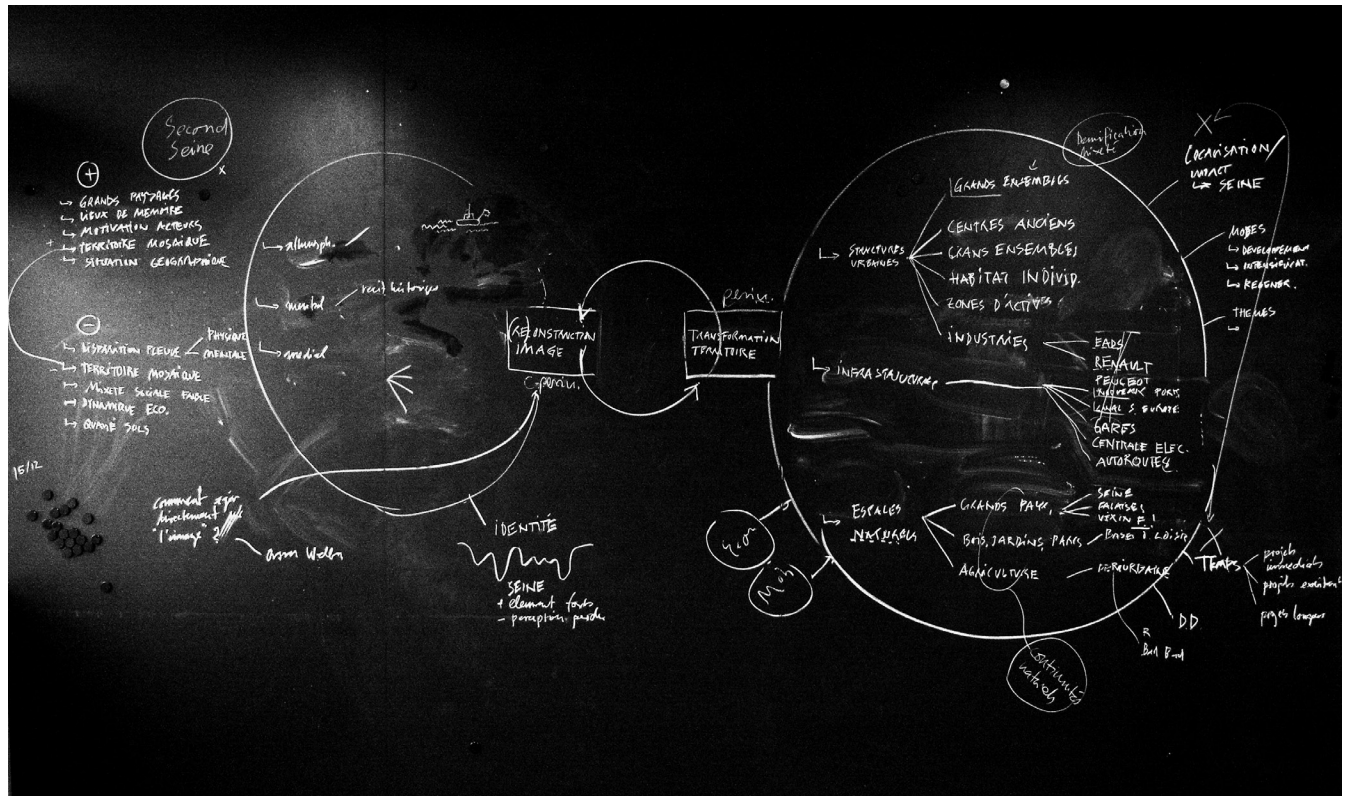 Second
Seine
x
+
GRANDS PAYSAGES
LIEUX DE MEMOIRE
MOTIVATION ACTEURS
TERRITOIRE MOSAIQUE
SITUATION GEOGRAPHIQUE
-
DISPARITION FLEUVE
PHYSIQUE
MENTALE
TERRITOIRE MOSAIQUE
MIXETE SOCIALE FAIBLE
DYNAMIQUE ECO.
QUALITE SOLS
15/12
atmosph.
mental
recit historique
medial
comment agir
directement
"l'image" ?
IDENTITÉ
SEINE
+ element forts
- perception perdue
RECONSTRUCTION
IMAGE
TRANSFORMATION
TERRITOIRE
Densification
mixeté
STRUCTURES
URBAINES
GRANDS ENSEMBLES
CENTRES ANCIENS
GRANS ENSEMBLES
HABITAT INDIVID.
ZONES D'ACTIVITES
INDUSTRIES
EADS
RENAULT
PEUGEOT
INFRASTRUCTURES
NOUVEAUX PORTS
CANAL S. EUROPE
GARES
CENTRALE ELEC.
AUTOROUTES
ESPACES
NATURELS
GRANDS PAYS.
SEINE
FALAISES
VEXIN F.
BOIS, JARDINS, PARCS
BASES D. LOISIR
AGRICULTURE
PERIURBAINE
continuités
naturels
X
LOCALISATION/
IMPACT
SEINE
MODES
DEVELOPEMENT
INTENSIFICAT.
REGENER.
THEMES
X
TEMPS
projets
immediats
projets existent
projets longues
D.D.
R